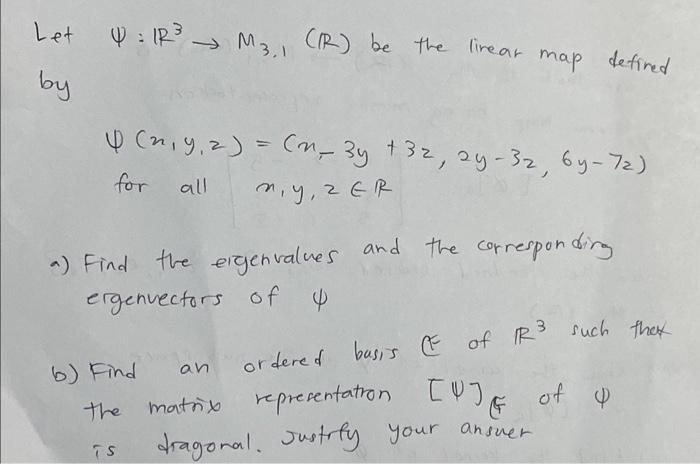 Let ψ : ℝ³ → M₃,₁ (ℝ) be the linear map defined
by
ψ (x, y, z) = (x - 3y + 3z, 2y - 3z, 6y - 7z)
for all x, y, z ∈ ℝ
a) Find the eigenvalues and the corresponding
eigenvectors of ψ
b) Find an ordered basis E of ℝ³ such that
the matrix representation [ψ]_E of ψ
is diagonal. Justify your answer